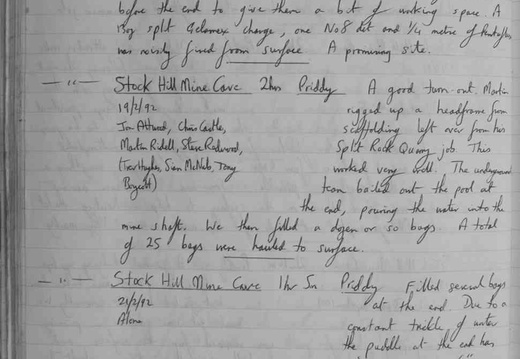 before the end to give them a bit of working space. A
split Gelamex charge, one No 8 det and 1/4 metre of
was noisily fired from surface. A promising site.
— " — Stock Hill Mine Cave 2hrs Priddy A good turn-out. Martin
19/2/92 rigged up a headframe from
Jim Attwood, Chris Castle, scaffolding left over from his
Martin Ridell, Steve Redwood, Split Rock Quarry job. This
(Trev Hughes, Sian McNab, Tony worked very well. The underground
Boycott) team bailed out the pool at
the end, pouring the water into the
mine shaft. We then filled a dozen or so bags. A total
of 25 bags were hauled to surface.
— " — Stock Hill Mine Cave 1hr Priddy Filled several bags
21/2/92 at the end. Due to a
Alone constant trickle of water
the puddle at the end has